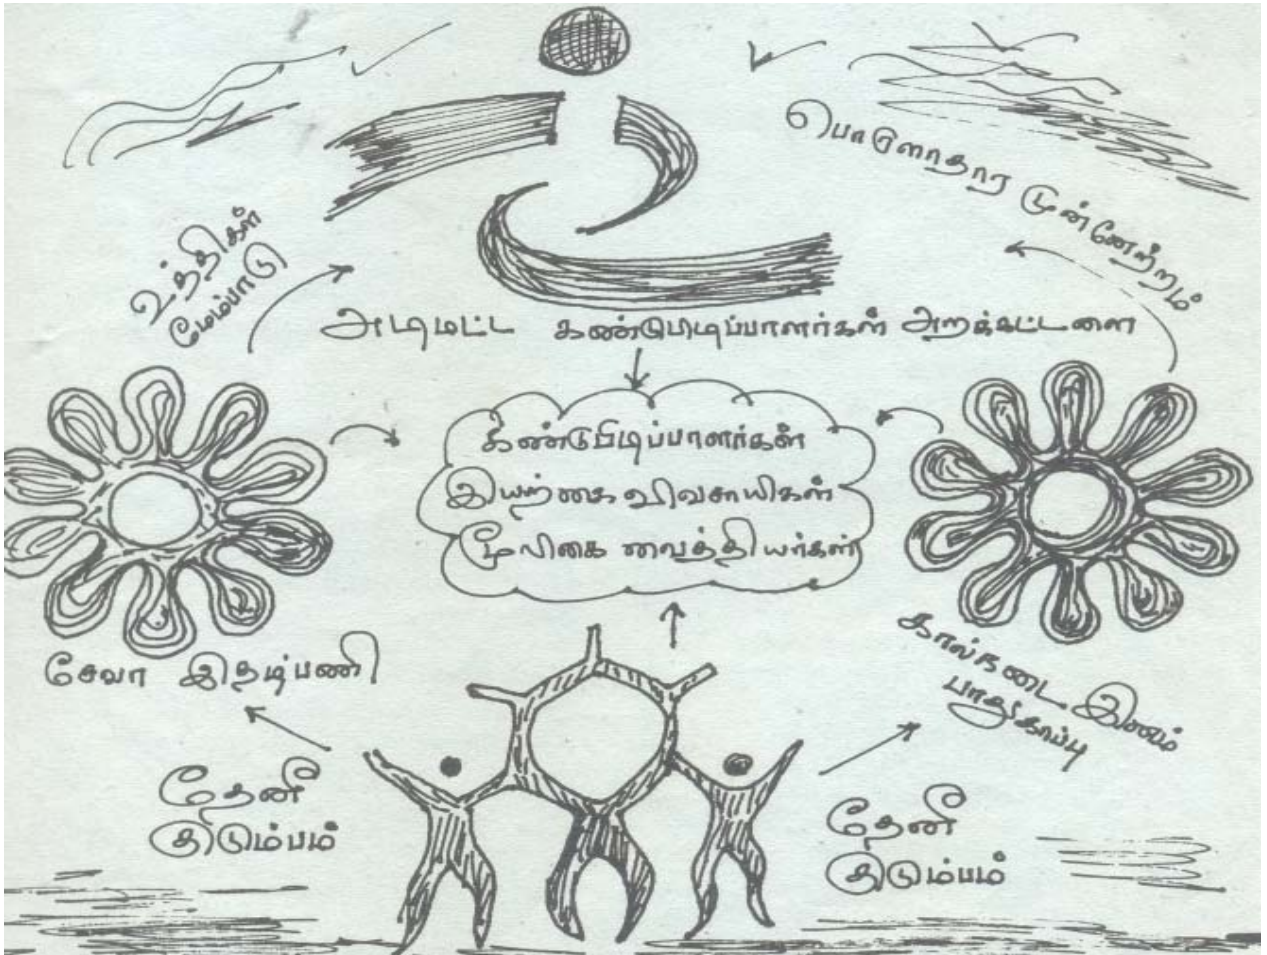 பொருளாதார முன்னேற்றம்
உத்திகள்
மேம்பாடு
அடிமட்ட கண்டுபிடிப்பாளர்கள் அறக்கட்டளை
கண்டுபிடிப்பாளர்கள்
இயற்கை விவசாயிகள்
மூலிகை வைத்தியர்கள்
சேவா இதழ்பணி
கால்நடை இனம்
பாதுகாப்பு
தேனீ
குடும்பம்
தேனீ
குடும்பம்